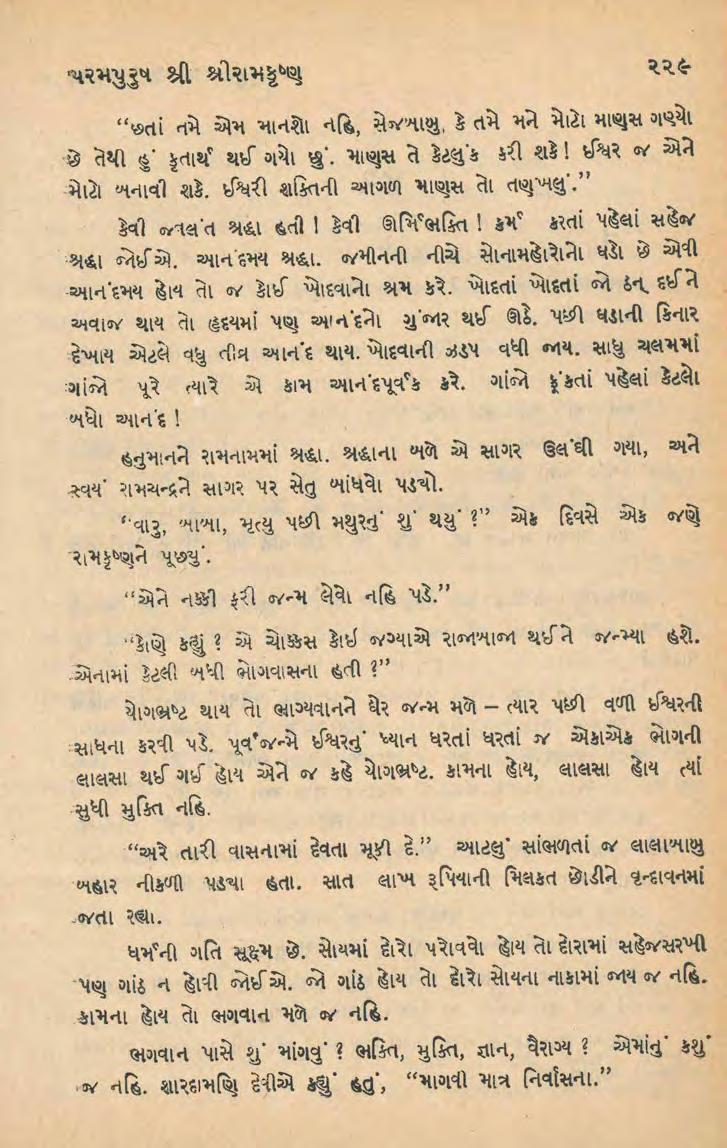 પરમપુરુષ શ્રી શ્રીરામકૃષ્ણ ૨૨૯
“છતાં તમે એમ માનશો નહિ, સેજબાબુ, કે તમે મને મોટો માણસ ગણ્યો
છે તેથી હું કૃતાર્થ થઈ ગયો છું. માણસ તે કેટલુંક કરી શકે! ઈશ્વર જ એને
મોટો બનાવી શકે. ઈશ્વરી શક્તિની આગળ માણસ તો તણખલું.”
કેવી જ્વલંત શ્રદ્ધા હતી! કેવી ઊર્મિભક્તિ! કર્મ કરતાં પહેલાં સહેજ
શ્રદ્ધા જોઈએ. આનંદમય શ્રદ્ધા. જમીનની નીચે સોનામહોરોનો ઘડો છે એવી
આનંદમય હોય તો જ કોઈ ખોદવાનો શ્રમ કરે. ખોદતાં ખોદતાં જો ઠન્ દઈને
અવાજ થાય તો હૃદયમાં પણ આનંદનો ગુંજાર થઈ ઊઠે. પછી ઘડાની કિનાર
દેખાય એટલે વધુ તીવ્ર આનંદ થાય. ખોદવાની ઝડપ વધી જાય. સાધુ ચલમમાં
ગાંજો પૂરે ત્યારે એ કામ આનંદપૂર્વક કરે. ગાંજો ફૂંકતાં પહેલાં કેટલો
બધો આનંદ!
હનુમાનને રામનામમાં શ્રદ્ધા. શ્રદ્ધાના બળે એ સાગર ઉલંઘી ગયા, અને
સ્વયં રામચન્દ્રને સાગર પર સેતુ બાંધવો પડ્યો.
“વારુ, બાબા, મૃત્યુ પછી મથુરનું શું થયું?” એક દિવસે એક જણે
રામકૃષ્ણને પૂછ્યું.
“એને નક્કી ફરી જન્મ લેવો નહિ પડે.”
“કોણે કહ્યું? એ ચોક્કસ કોઈ જગ્યાએ રાજાબાજા થઈને જન્મ્યા હશે.
એનામાં કેટલી બધી ભોગવાસના હતી?”
યોગભ્રષ્ટ થાય તો ભાગ્યવાનને ઘેર જન્મ મળે – ત્યાર પછી વળી ઈશ્વરની
સાધના કરવી પડે. પૂર્વજન્મે ઈશ્વરનું ધ્યાન ધરતાં ધરતાં જ એકાએક ભોગની
લાલસા થઈ ગઈ હોય એને જ કહે યોગભ્રષ્ટ. કામના હોય, લાલસા હોય ત્યાં
સુધી મુક્તિ નહિ.
“અરે તારી વાસનામાં દેવતા મૂકી દે.” આટલું સાંભળતાં જ લાલાબાબુ
બહાર નીકળી પડ્યા હતા. સાત લાખ રૂપિયાની મિલકત છોડીને વૃન્દાવનમાં
જતા રહ્યા.
ધર્મની ગતિ સૂક્ષ્મ છે. સોયમાં દોરો પરોવવો હોય તો દોરામાં સહેજસરખી
પણ ગાંઠ ન હોવી જોઈએ. જો ગાંઠ હોય તો દોરો સોયના નાકામાં જાય જ નહિ.
કામના હોય તો ભગવાન મળે જ નહિ.
ભગવાન પાસે શું માંગવું? ભક્તિ, મુક્તિ, જ્ઞાન, વૈરાગ્ય? એમાંનું કશું
જ નહિ. શારદામણિ દેવીએ કહ્યું હતું, “માગવી માત્ર નિર્વાસના.”